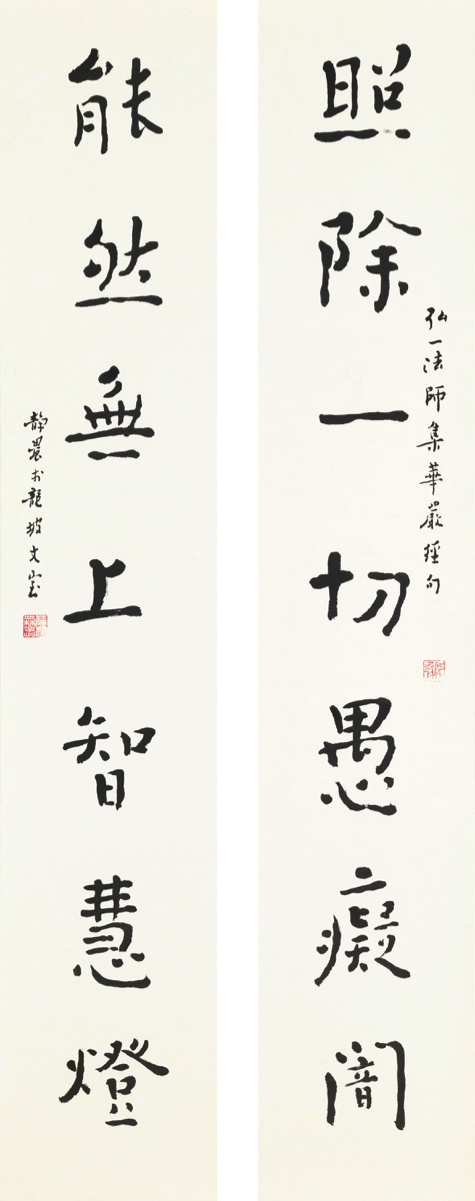 弘一法師集華嚴經句
照除一切愚癡闇
能然無上智慧燈
靜農於龍坡丈室